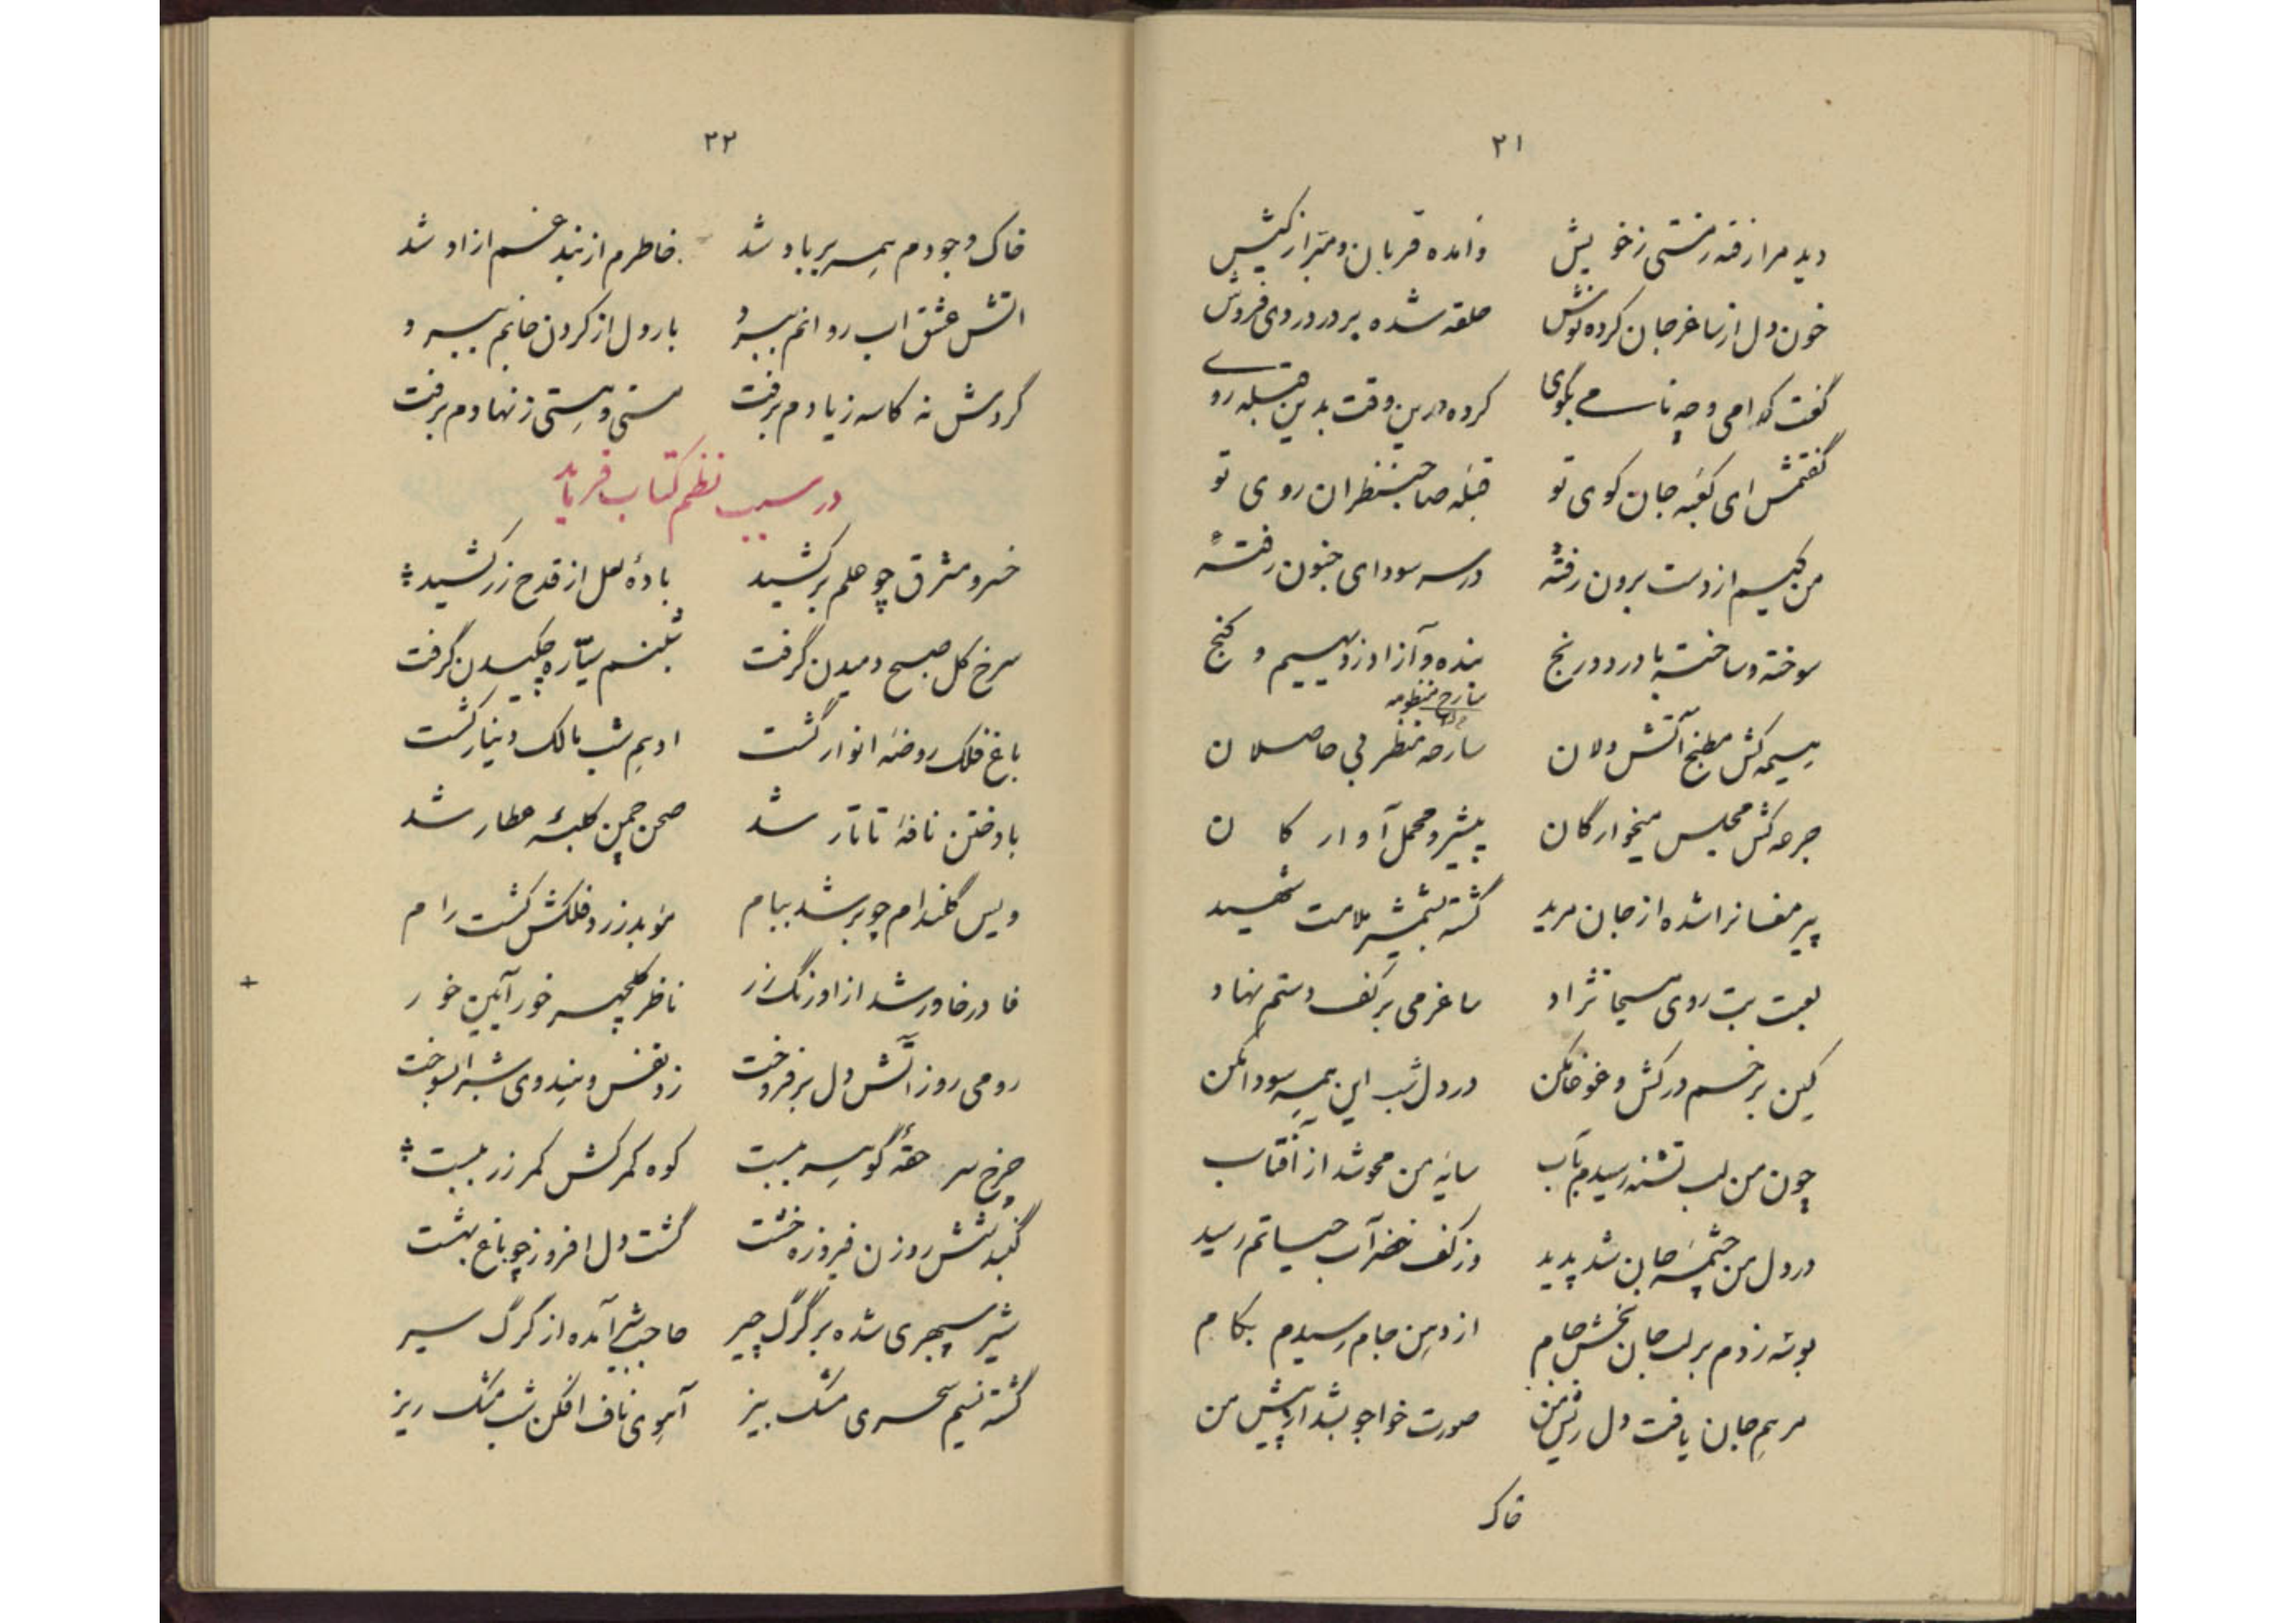 ۲۱
دید مرا رفته ز مستی ز خویش وامده قربان و مبرا ز کیش
خون دل از ساغر جان کرده نوش حلقه شده بر در دردی فروش
گفت کدامی و چه نامی بگوی کرده درین وقت بدین قبله روی
گفتمش ای کعبه جان کوی تو قبله صاحبنظران روی تو
من کیم از دست برون رفتهٔ در سر سودای جنون رفتهٔ
سوخته و ساخته با درد و رنج بنده و آزاد ز دیهیم و گنج
هیمه کش مطبخ آتش دلان سارحه منظر بی حاصلان
جرعه کش مجلس میخوارگان پیشرو محمل آوارگان
پیر مغانرا شده از جان مرید گشته بشمشیر ملامت شهید
لعبت بت روی مسیحا نژاد ساغر می بر کف دستم نهاد
کین بر خم در کش و غوغا مکن در دل شب این همه سودا مکن
چون من لب تشنه رسیدم بآب سایهٔ من محو شد از آفتاب
در دل من چشمهٔ جان شد پدید وز کف خضر آب حیاتم رسید
بوسه زدم بر لب جان بخش جام از دهن جام رسیدم بکام
مرهم جان یافت دل ریش من صورت خواجو بشد از پیش من
خاک
۲۲
خاک وجودم همه بر باد شد خاطرم از بند غم ازاد شد
اتش عشق اب روانم ببرد بار دل از گردن جانم ببرد
گردش نه کاسه ز یادم برفت مستی و هستی ز نهادم برفت
در سبب نظم کتاب فرماید
خسرو مشرق چو علم بر کشید بادهٔ لعل از قدح زر کشید
سرخ گل صبح دمیدن گرفت شبنم سیّاره چکیدن گرفت
باغ فلک روضهٔ انوار گشت ادهم شب مالک دینار گشت
باد ختن نافهٔ تاتار شد صحن چمن کلبهٔ عطار شد
ویس گلندام چو بر شد ببام موبد زرد فلکش گشت رام
خادر خاور شد از اورنگ زر ناظر گلچهر خور آیین خور
رومی روز آتش دل بر فروخت زد نفس و هندوی شب را بسوخت
چرخ سر حقهٔ گوهر ببست کوه کمرکش کمر زر ببست
گنبد شش روزن فیروزه خشت گشت دل افروز چو باغ بهشت
شیر سپهری شده بر گرگ چیر حاجب شب آمده از گرگ سیر
گشته نسیم سحری مشک بیز آهوی ناف افکن شب مشک ریز